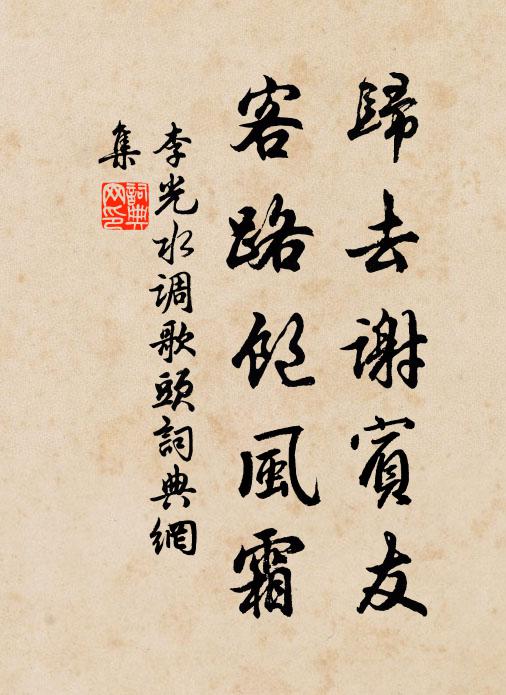 歸去謝賓友
客路飽風霜
李光水调歌頭詞典網
集
詞典網印